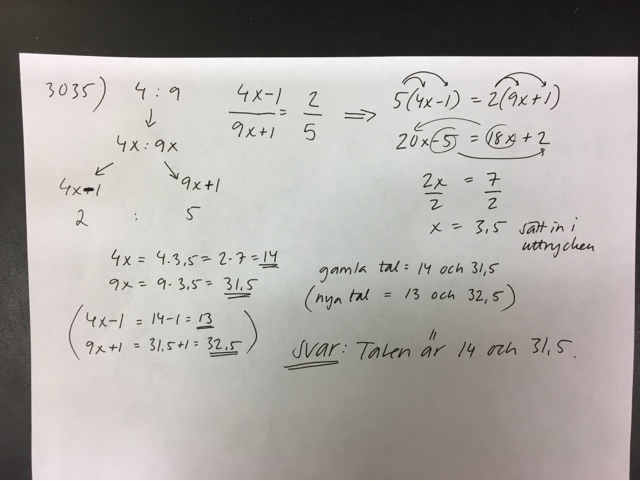 3035)
4 : 9
4x : 9x
4x-1 9x+1
2 : 5
4x-1 / 9x+1 = 2 / 5 ⟹ 5(4x-1) = 2(9x+1)
20x-5 = 18x+2
2x / 2 = 7 / 2
x = 3,5 sätt in i
uttrycken
4x = 4·3,5 = 2·7 = 14
9x = 9·3,5 = 31,5
(4x-1 = 14-1 = 13
9x+1 = 31,5+1 = 32,5)
gamla tal: 14 och 31,5
(nya tal = 13 och 32,5)
Svar: Talen är 14 och 31,5.